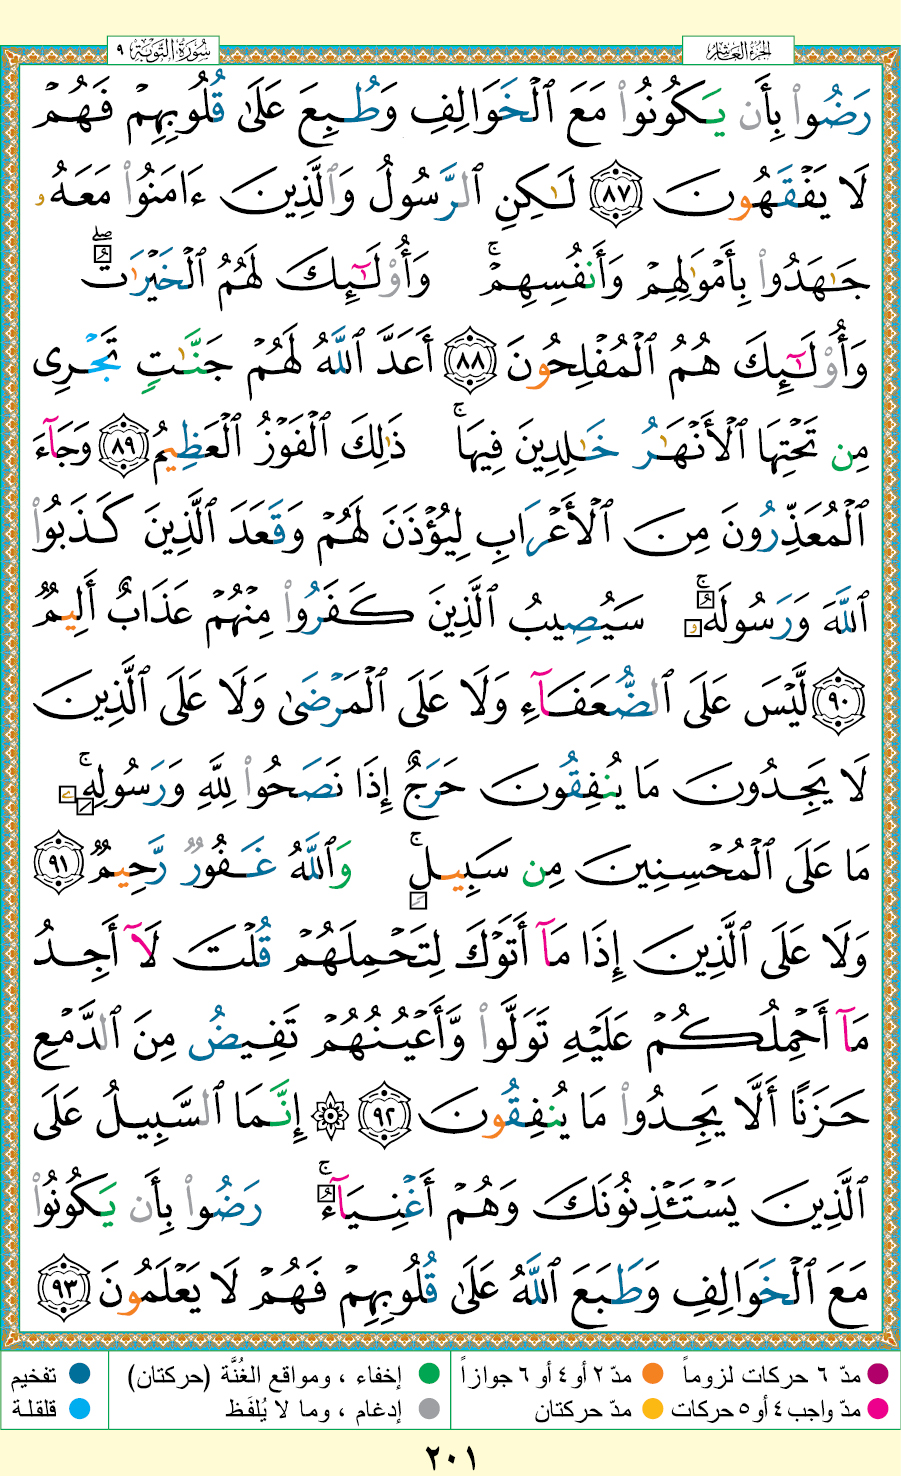 سُورَةُ التَّوْبَة ٩
الجُزءُ العَاشِر
رَضُوا۟ بِأَن يَكُونُوا۟ مَعَ ٱلْخَوَالِفِ وَطُبِعَ عَلَىٰ قُلُوبِهِمْ فَهُمْ
لَا يَفْقَهُونَ ٨٧ لَـٰكِنِ ٱلرَّسُولُ وَٱلَّذِينَ ءَامَنُوا۟ مَعَهُۥ
جَـٰهَدُوا۟ بِأَمْوَٰلِهِمْ وَأَنفُسِهِمْ ۚ وَأُو۟لَـٰٓئِكَ لَهُمُ ٱلْخَيْرَٰتُ ۖ
وَأُو۟لَـٰٓئِكَ هُمُ ٱلْمُفْلِحُونَ ٨٨ أَعَدَّ ٱللَّهُ لَهُمْ جَنَّـٰتٍ تَجْرِى
مِن تَحْتِهَا ٱلْأَنْهَـٰرُ خَـٰلِدِينَ فِيهَا ۚ ذَٰلِكَ ٱلْفَوْزُ ٱلْعَظِيمُ ٨٩ وَجَآءَ
ٱلْمُعَذِّرُونَ مِنَ ٱلْأَعْرَابِ لِيُؤْذَنَ لَهُمْ وَقَعَدَ ٱلَّذِينَ كَذَبُوا۟
ٱللَّهَ وَرَسُولَهُۥ ۚ سَيُصِيبُ ٱلَّذِينَ كَفَرُوا۟ مِنْهُمْ عَذَابٌ أَلِيمٌ
٩٠ لَّيْسَ عَلَى ٱلضُّعَفَآءِ وَلَا عَلَى ٱلْمَرْضَىٰ وَلَا عَلَى ٱلَّذِينَ
لَا يَجِدُونَ مَا يُنفِقُونَ حَرَجٌ إِذَا نَصَحُوا۟ لِلَّهِ وَرَسُولِهِۦ ۚ
مَا عَلَى ٱلْمُحْسِنِينَ مِن سَبِيلٍ ۚ وَٱللَّهُ غَفُورٌ رَّحِيمٌ ٩١
وَلَا عَلَى ٱلَّذِينَ إِذَا مَآ أَتَوْكَ لِتَحْمِلَهُمْ قُلْتَ لَآ أَجِدُ
مَآ أَحْمِلُكُمْ عَلَيْهِ تَوَلَّوا۟ وَّأَعْيُنُهُمْ تَفِيضُ مِنَ ٱلدَّمْعِ
حَزَنًا أَلَّا يَجِدُوا۟ مَا يُنفِقُونَ ٩٢ ۞ إِنَّمَا ٱلسَّبِيلُ عَلَى
ٱلَّذِينَ يَسْتَـْٔذِنُونَكَ وَهُمْ أَغْنِيَآءُ ۚ رَضُوا۟ بِأَن يَكُونُوا۟
مَعَ ٱلْخَوَالِفِ وَطَبَعَ ٱللَّهُ عَلَىٰ قُلُوبِهِمْ فَهُمْ لَا يَعْلَمُونَ ٩٣
مدّ ٦ حركات لزوماً مدّ ٢ أو ٤ أو ٦ جوازاً إخفاء ، ومواقع الغُنَّة (حركتان) تفخيم
مدّ واجب ٤ أو ٥ حركات مدّ حركتان إدغام ، وما لا يُلفَظ قلقلة
٢٠١